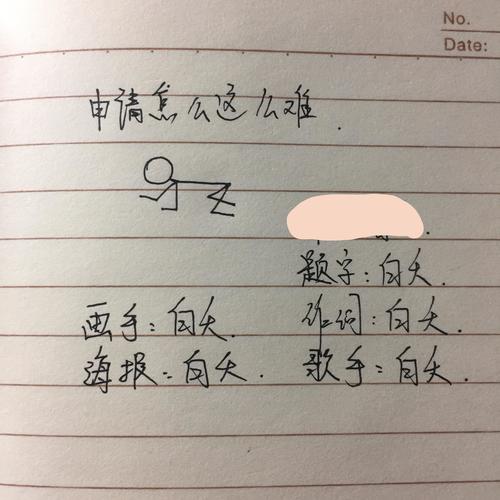 No.
Date:
申请怎么这么难.
题字:白夭.
画手:白夭. 作词:白夭.
海报:白夭. 歌手:白夭.